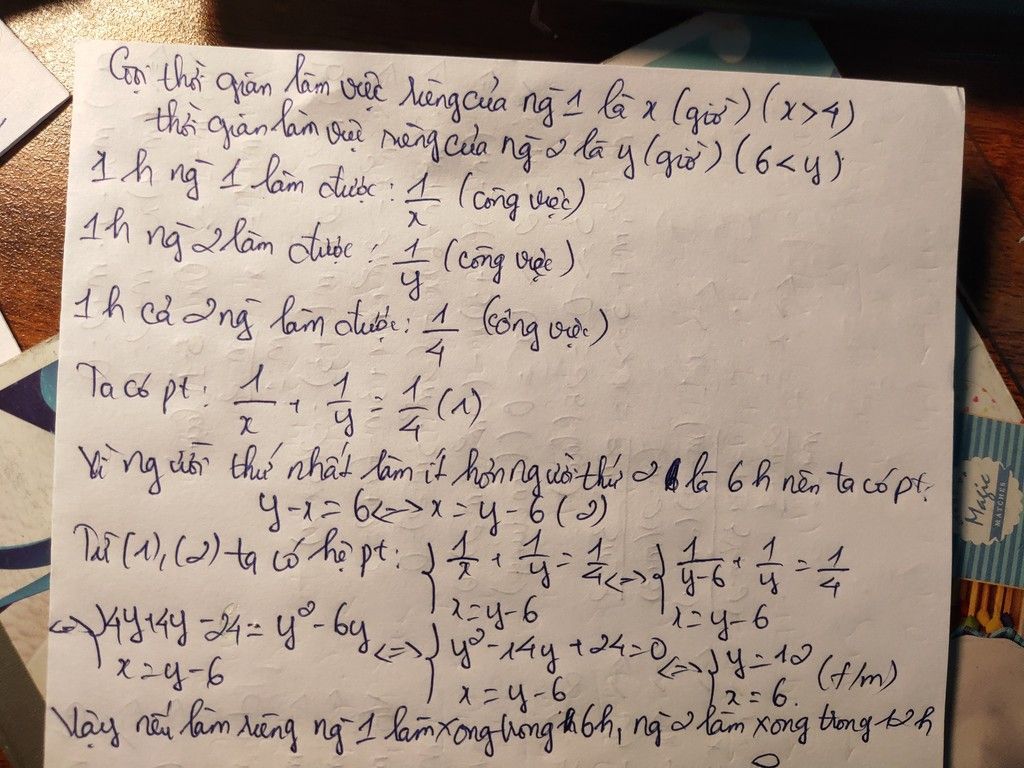 Gọi thời gian làm việc riêng của ng 1 là x (giờ) (x>4)
thời gian làm việc riêng của ng 2 là y (giờ) (6<y)
1h ng 1 làm được: 1/x (công việc)
1h ng 2 làm được: 1/y (công việc)
1h cả 2 ng làm được: 1/4 (công việc)
Ta có pt: 1/x + 1/y = 1/4 (1)
Vì người thứ nhất làm ít hơn người thứ 2 là 6h nên ta có pt:
y-x=6 <=> x=y-6 (2)
Từ (1), (2) ta có hệ pt: { 1/x + 1/y = 1/4 ; x=y-6 <=> { 1/(y-6) + 1/y = 1/4 ; x=y-6
<=> { 4y+4y-24=y²-6y ; x=y-6 <=> { y²-14y+24=0 ; x=y-6 <=> { y=12 ; x=6 (t/m)
Vậy nếu làm riêng ng 1 làm xong trong 6h, ng 2 làm xong trong 12h
Magic
MATCHES